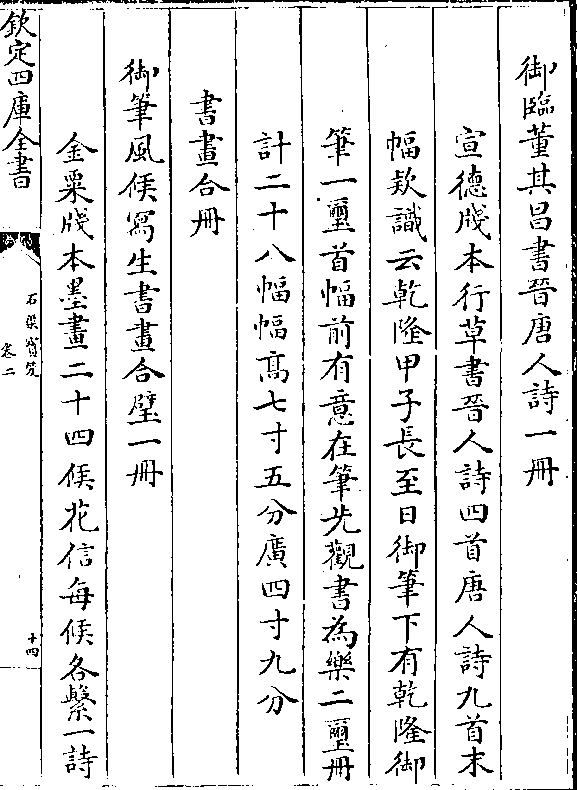 御臨董其昌書晉唐人詩一冊
宣德牋本行草書晉人詩四首唐人詩九首末
幅欵識云乾隆甲子長至日御筆下有乾隆御
筆一璽首幅前有意在筆先觀書為樂二璽冊
計二十八幅幅髙七寸五分廣四寸九分
書畫合冊
御筆風候寫生書畫合璧一冊
金粟牋本墨畫二十四候花信每候各繫一詩
欽定四庫全書
石渠寳笈
卷二
十四